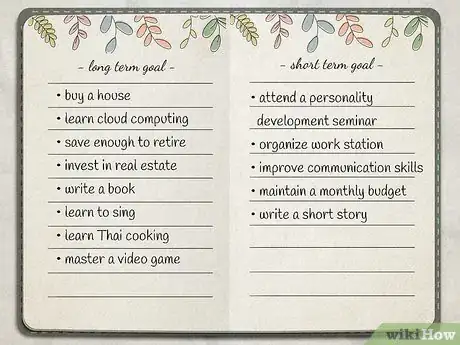 - long term goal -
• buy a house
• learn cloud computing
• save enough to retire
• invest in real estate
• write a book
• learn to sing
• learn Thai cooking
• master a video game
- short term goal -
• attend a personality
development seminar
• organize work station
• improve communication skills
• maintain a monthly budget
• write a short story
wikiHow